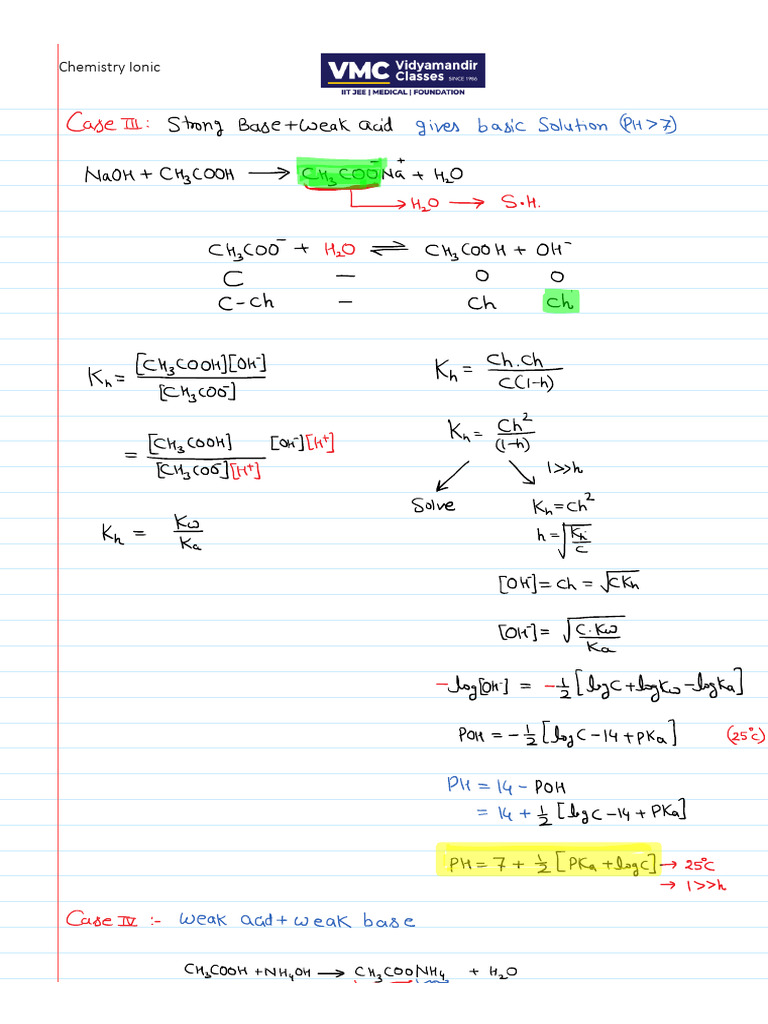 Chemistry Ionic
VMC Vidyamandir Classes SINCE 1986
IIT JEE | MEDICAL | FOUNDATION
Case III: Strong Base + Weak acid gives basic Solution (PH > 7)
NaOH + CH₃COOH ⟶ CH₃COO⁻Na⁺ + H₂O
→ H₂O ⟶ S.H.
CH₃COO⁻ + H₂O ⇌ CH₃COOH + OH⁻
C — O O
C-Ch — Ch Ch
Kₕ = [CH₃COOH][OH⁻] / [CH₃COO⁻]
= [CH₃COOH] / [CH₃COO⁻][H⁺] [OH⁻][H⁺]
Kₕ = Kω / Ka
Kₕ = Ch.Ch / C(1-h)
Kₕ = Ch² / (1-h)
1>>h
Solve Kₕ = Ch²
h = √(Kₕ / C)
[OH⁻] = Ch = √(CKₕ)
[OH⁻] = √(C.Kω / Ka)
-log[OH⁻] = -½[logC + logKω - logKa]
POH = -½[logC - 14 + PKa] (25°C)
PH = 14 - POH
= 14 + ½[logC - 14 + PKa]
PH = 7 + ½[PKa + logC] → 25°C
→ 1>>h
Case IV :- Weak acid + Weak base
CH₃COOH + NH₄OH ⟶ CH₃COONH₄ + H₂O